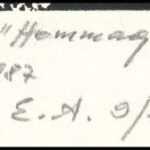 "Hommag
987
E. A. 9/